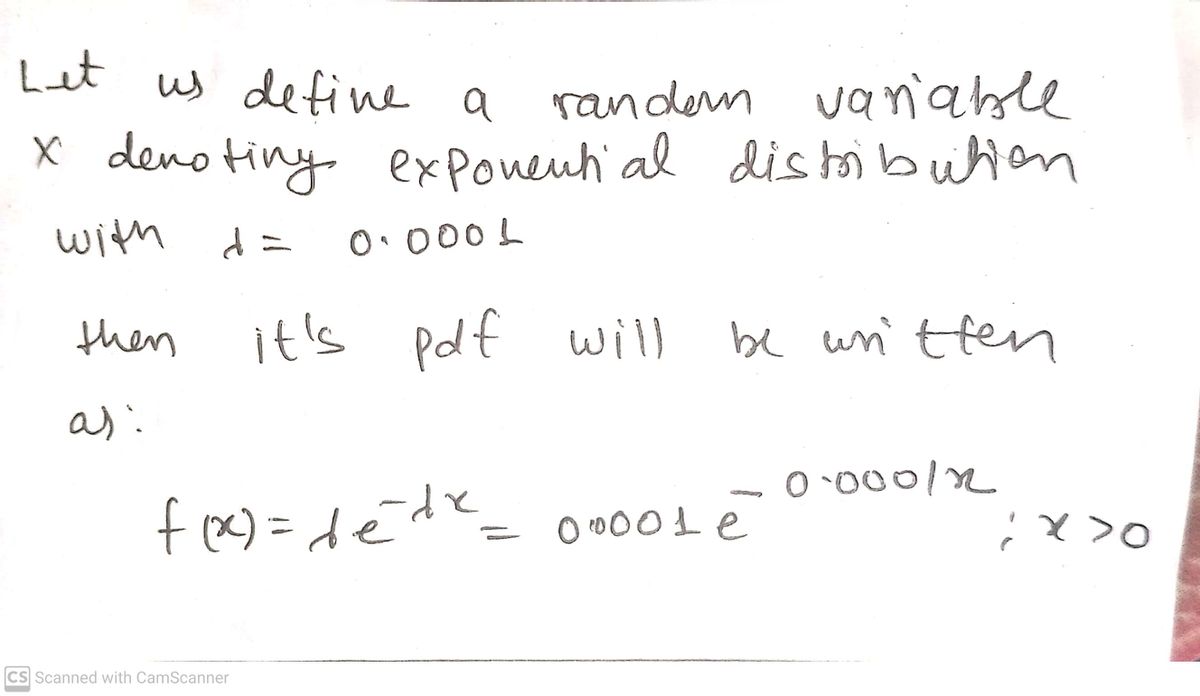 Let us define a random variable
X denoting exponential distribution
with λ = 0.0001
then it's pdf will be written
as:
f(x) = λe^{-λx} = 0.0001 e^{-0.0001x} ; x>0
CS Scanned with CamScanner